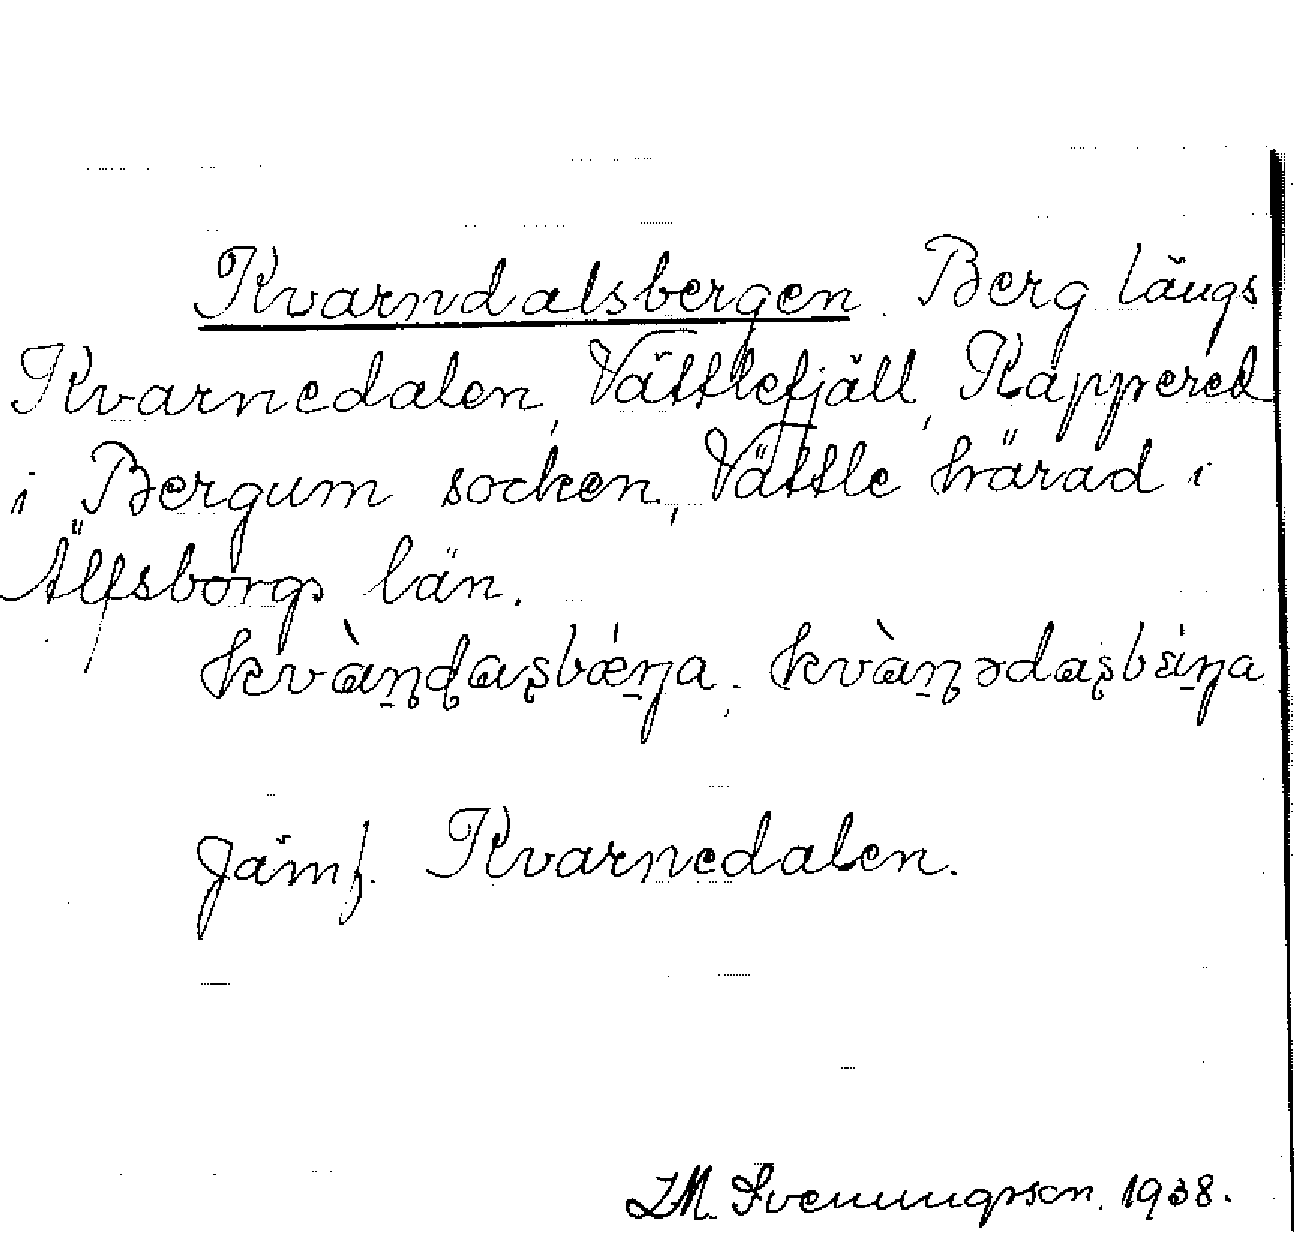 Kvarndalsbergen. Berg längs
Kvarnedalen, Vättlefjäll, Kappered
i Bergum socken, Vättle härad i
Älfsborgs län.
Jämf. Kvarnedalen.
Svenungsson. 1938.